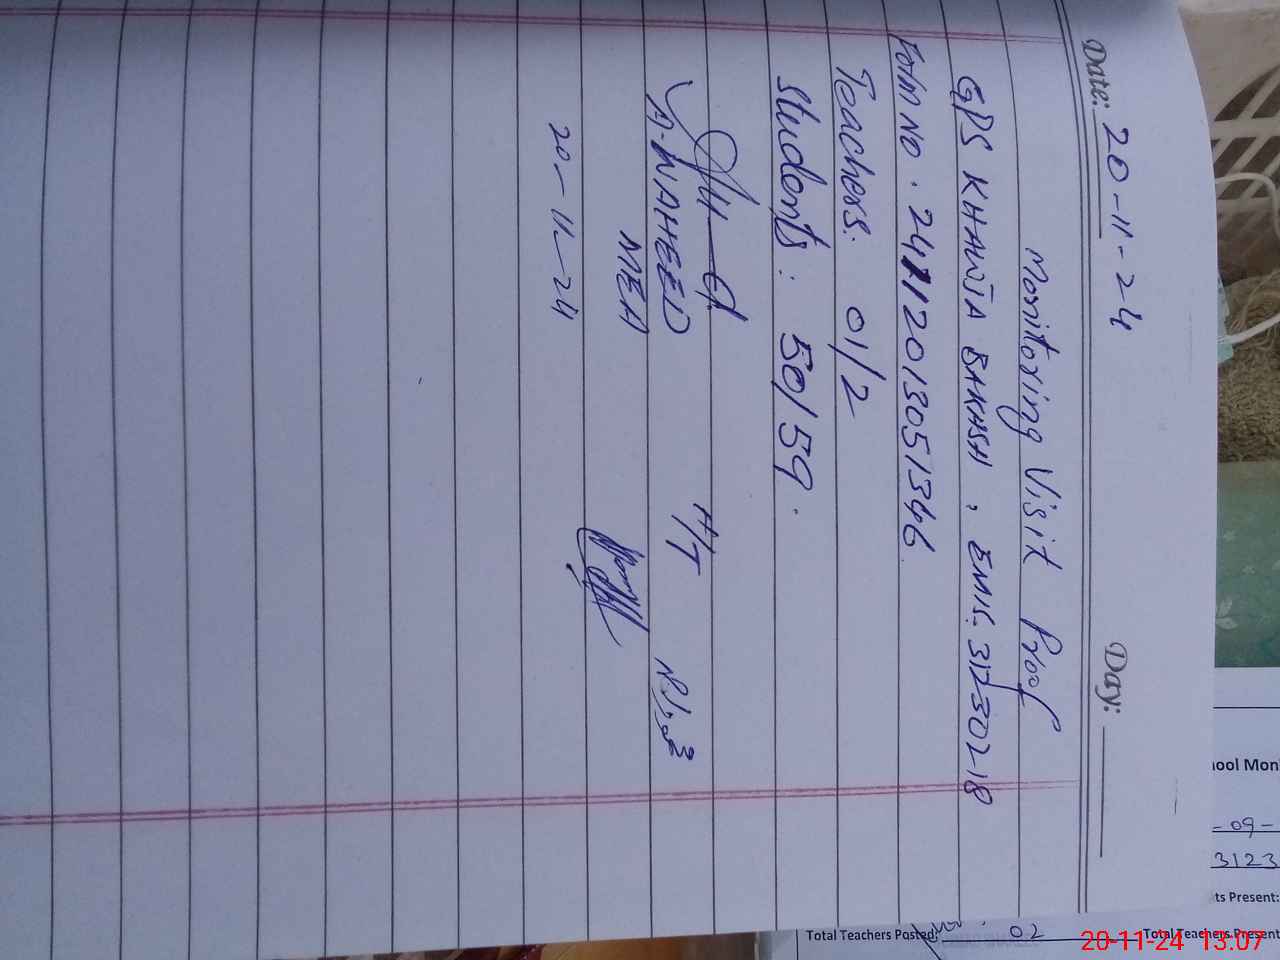 Date: 20-11-24 Day:
Monitoring Visit Proof
GPS KHAWJA BAKHSH , EMIS. 31230218
Form No. 24112013051346
Teachers. 01/2
Students: 50/59.
A-WAHEED H/T
MEA
20-11-24
hool Mon
-09-
3123
ts Present:
Total Teachers Posted: 02 Total Teachers Present
20-11-24 13.07